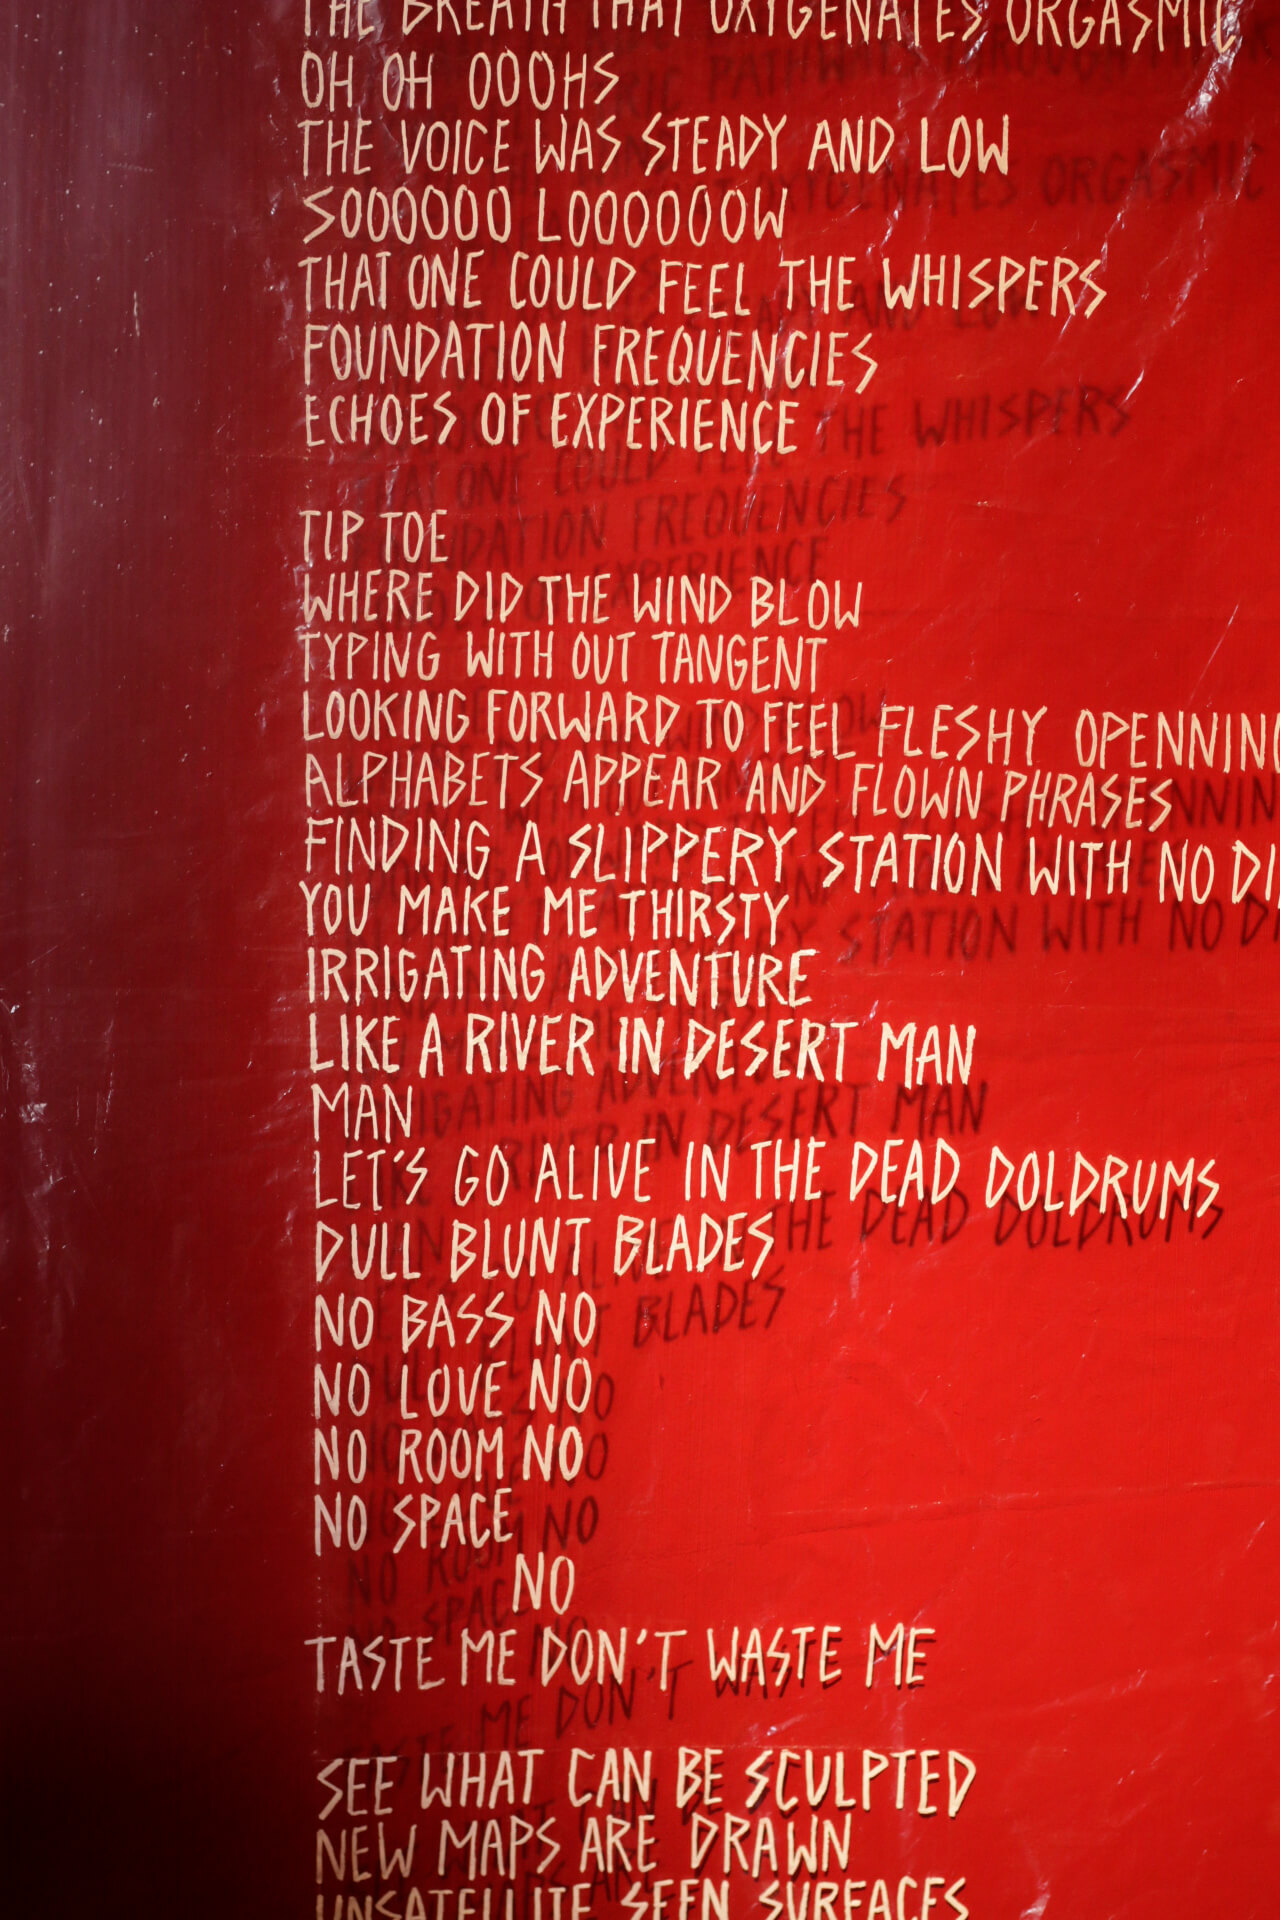 THE BREATH THAT OXYGENATES ORGASMIC
OH OH OOOHS
THE VOICE WAS STEADY AND LOW
SOOOOOO LOOOOOOW
THAT ONE COULD FEEL THE WHISPERS
FOUNDATION FREQUENCIES
ECHOES OF EXPERIENCE
TIP TOE
WHERE DID THE WIND BLOW
TYPING WITH OUT TANGENT
LOOKING FORWARD TO FEEL FLESHY OPENNING
ALPHABETS APPEAR AND FLOWN PHRASES
FINDING A SLIPPERY STATION WITH NO
YOU MAKE ME THIRSTY
IRRIGATING ADVENTURE
LIKE A RIVER IN DESERT MAN
MAN
LET'S GO ALIVE IN THE DEAD DOLDRUMS
DULL BLUNT BLADES
NO BASS NO
NO LOVE NO
NO ROOM NO
NO SPACE
NO
TASTE ME DON'T WASTE ME
SEE WHAT CAN BE SCULPTED
NEW MAPS ARE DRAWN
UNSATELLITE SEEN SURFACES